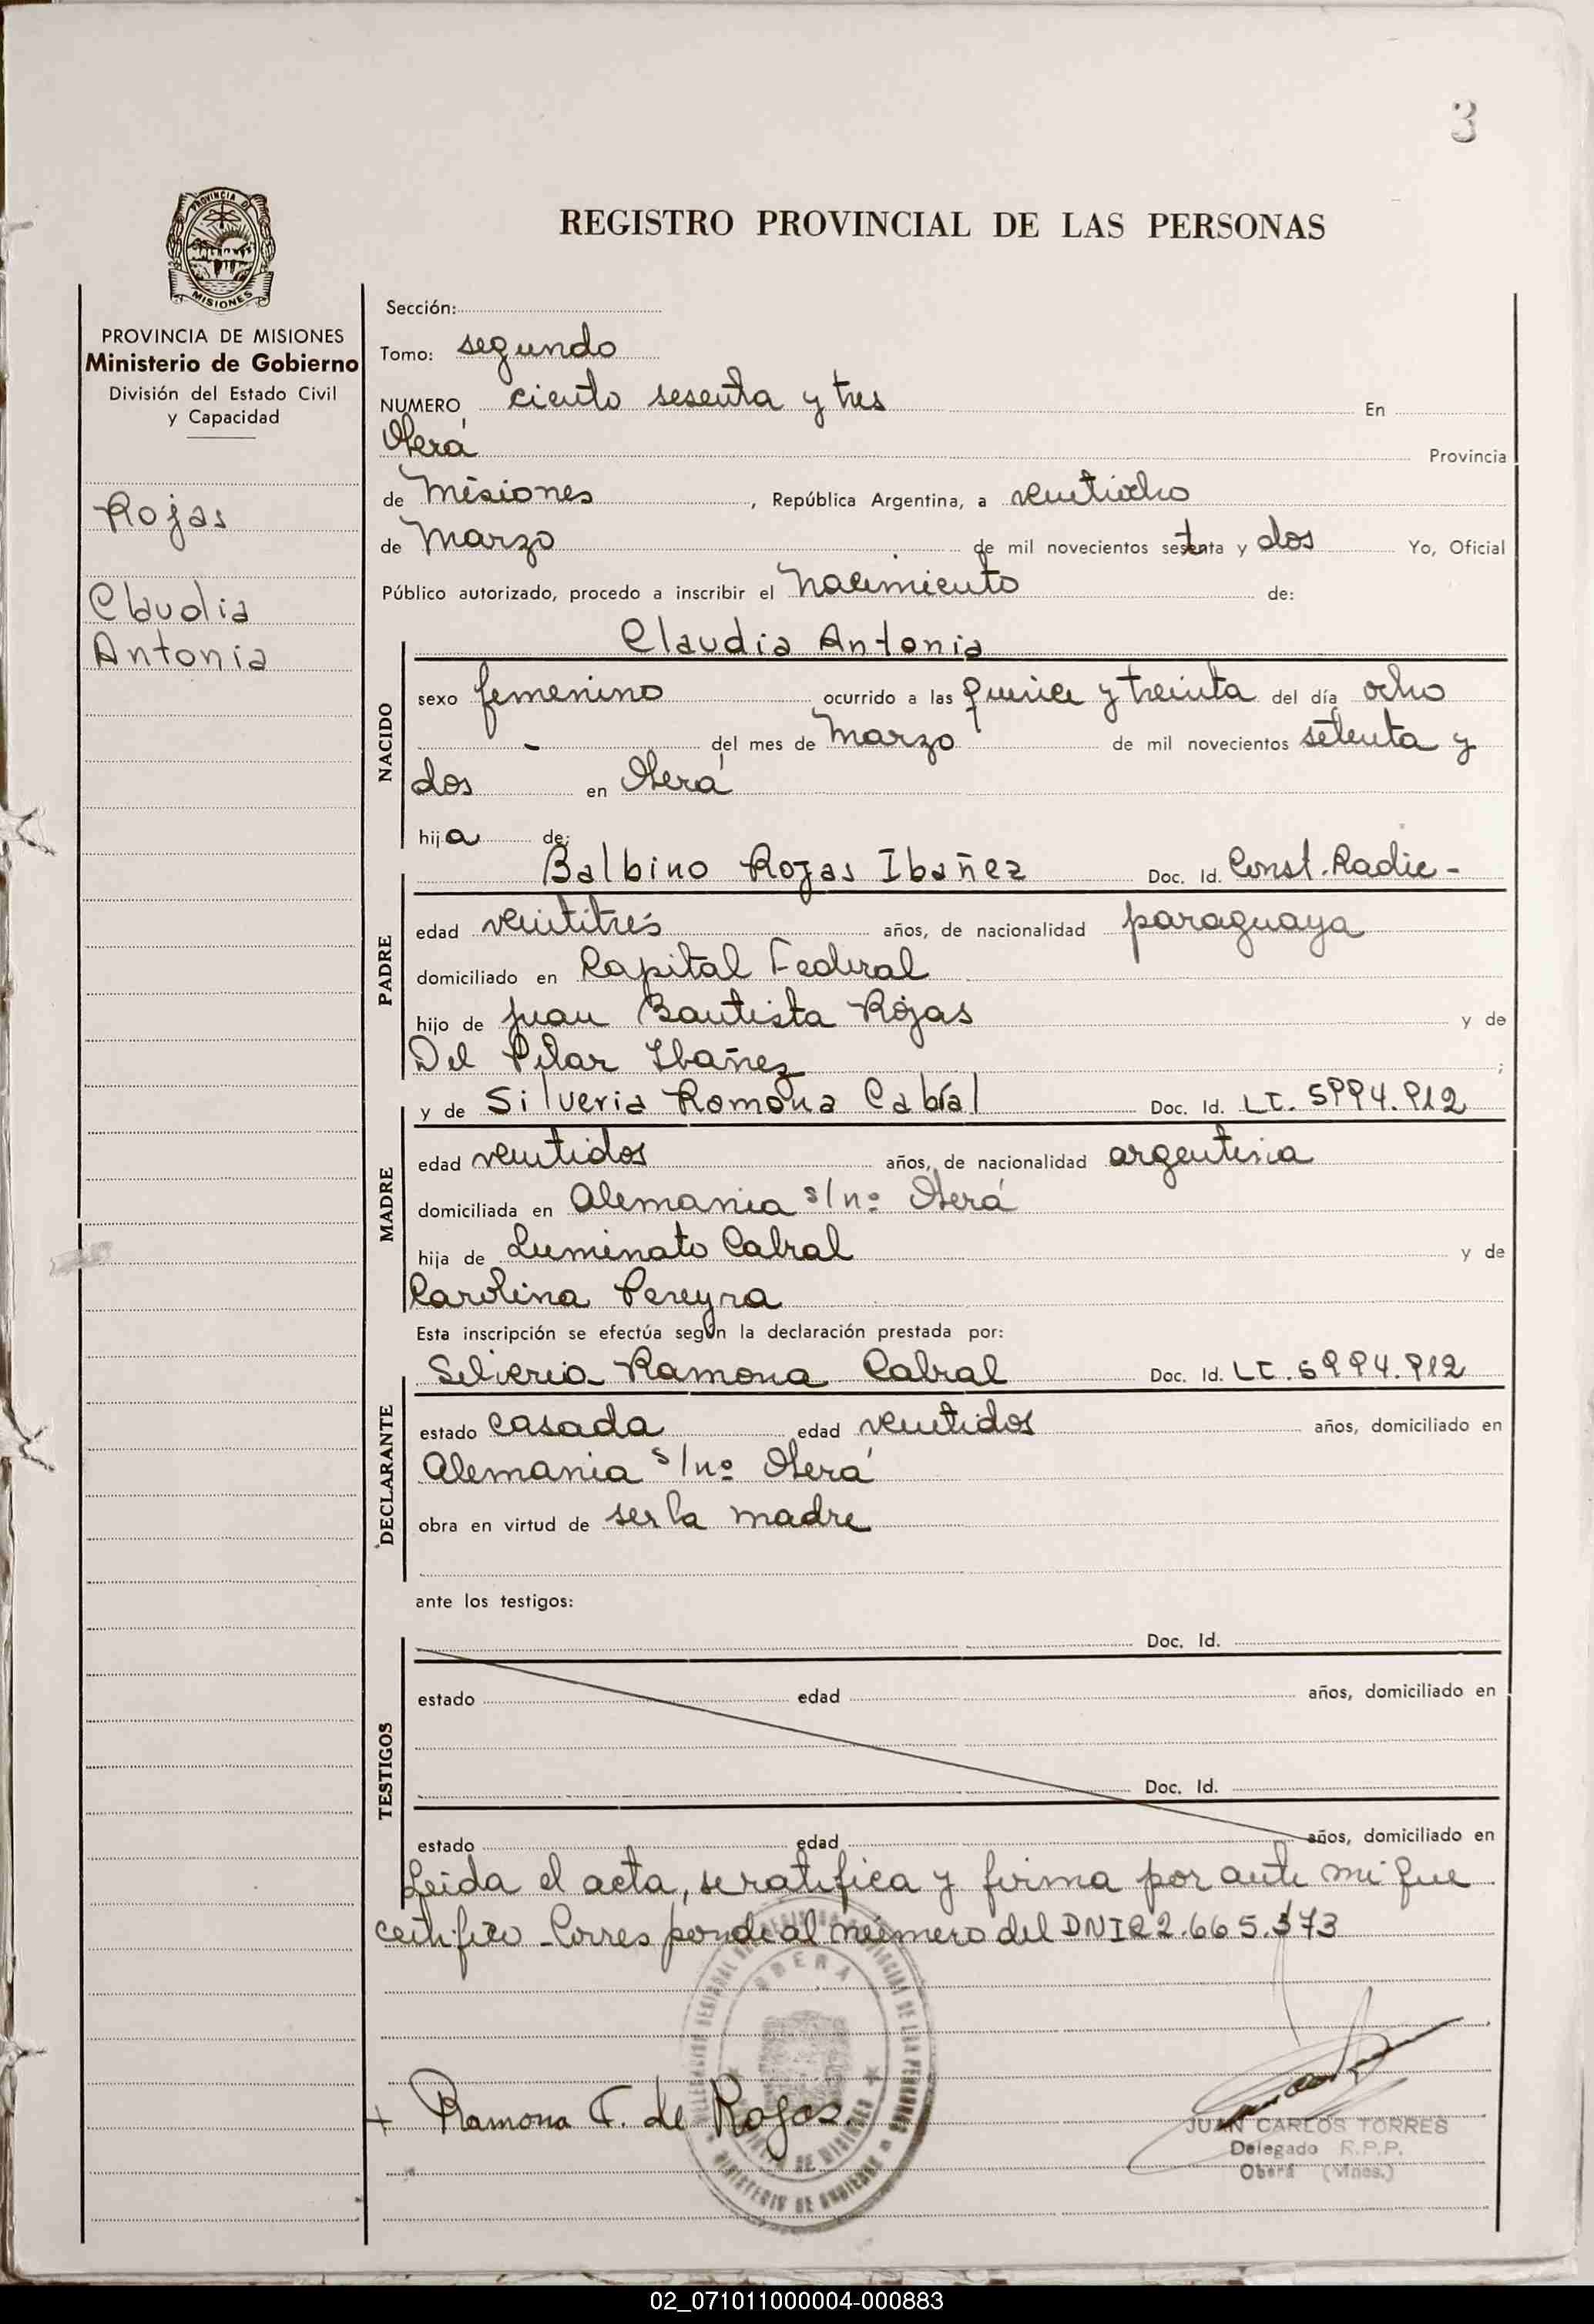 3
PROVINCIA DE
MISIONES
REGISTRO PROVINCIAL DE LAS PERSONAS
PROVINCIA DE MISIONES
Ministerio de Gobierno
División del Estado Civil
y Capacidad
Rojas
Claudia
Antonia
Sección:
Tomo: segundo
NUMERO ciento sesenta y tres En
Oberá Provincia
de Misiones, República Argentina, a veintiocho
de Marzo de mil novecientos setenta y dos Yo, Oficial
Público autorizado, procedo a inscribir el Nacimiento de:
NACIDO
Claudia Antonia
sexo femenino ocurrido a las quince y treinta del día ocho
del mes de Marzo de mil novecientos setenta y
dos en Oberá
hija de:
PADRE
Balbino Rojas Ibañez Doc. Id. Const. Radic-
edad veintitrés años, de nacionalidad paraguaya
domiciliado en Capital Federal
hijo de Juan Bautista Rojas y de
Del Pilar Ibañez ;
MADRE
y de Silveria Ramona Cabral Doc. Id. LC.
edad veintidos años, de nacionalidad argentina
domiciliada en Alemania s/nº Oberá
hija de Luminato Cabral y de
Carolina Pereyra
Esta inscripción se efectúa según la declaración prestada por:
DECLARANTE
Silveria Ramona Cabral Doc. Id. LC.
estado casada edad veintidos años, domiciliado en
Alemania s/nº Oberá
obra en virtud de ser la madre
ante los testigos:
TESTIGOS
Doc. Id.
estado edad años, domiciliado en
Doc. Id.
estado edad años, domiciliado en
Leida el acta, se ratifica y firma por ante mi que
certifico - Corresponde al número del DNI 22.665.373
Ramona C. de Rojas.
OBERA
MINISTERIO DE GOBIERNO
JUAN CARLOS TORRES
Delegado R.P.P.
Oberá (Mnes.)
02_071011000004-000883